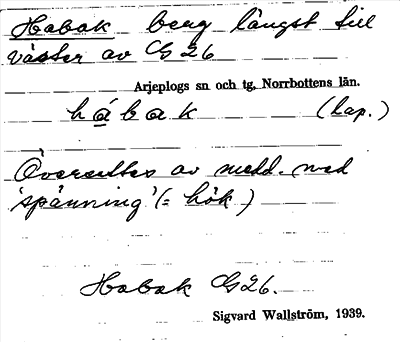 Habak berg längst till
väster av G 26
Arjeplogs sn och tg, Norrbottens län.
hábak (lap.)
Översättes av medd. med
'spänning' (= hök)
Habak G26.
Sigvard Wallström, 1939.